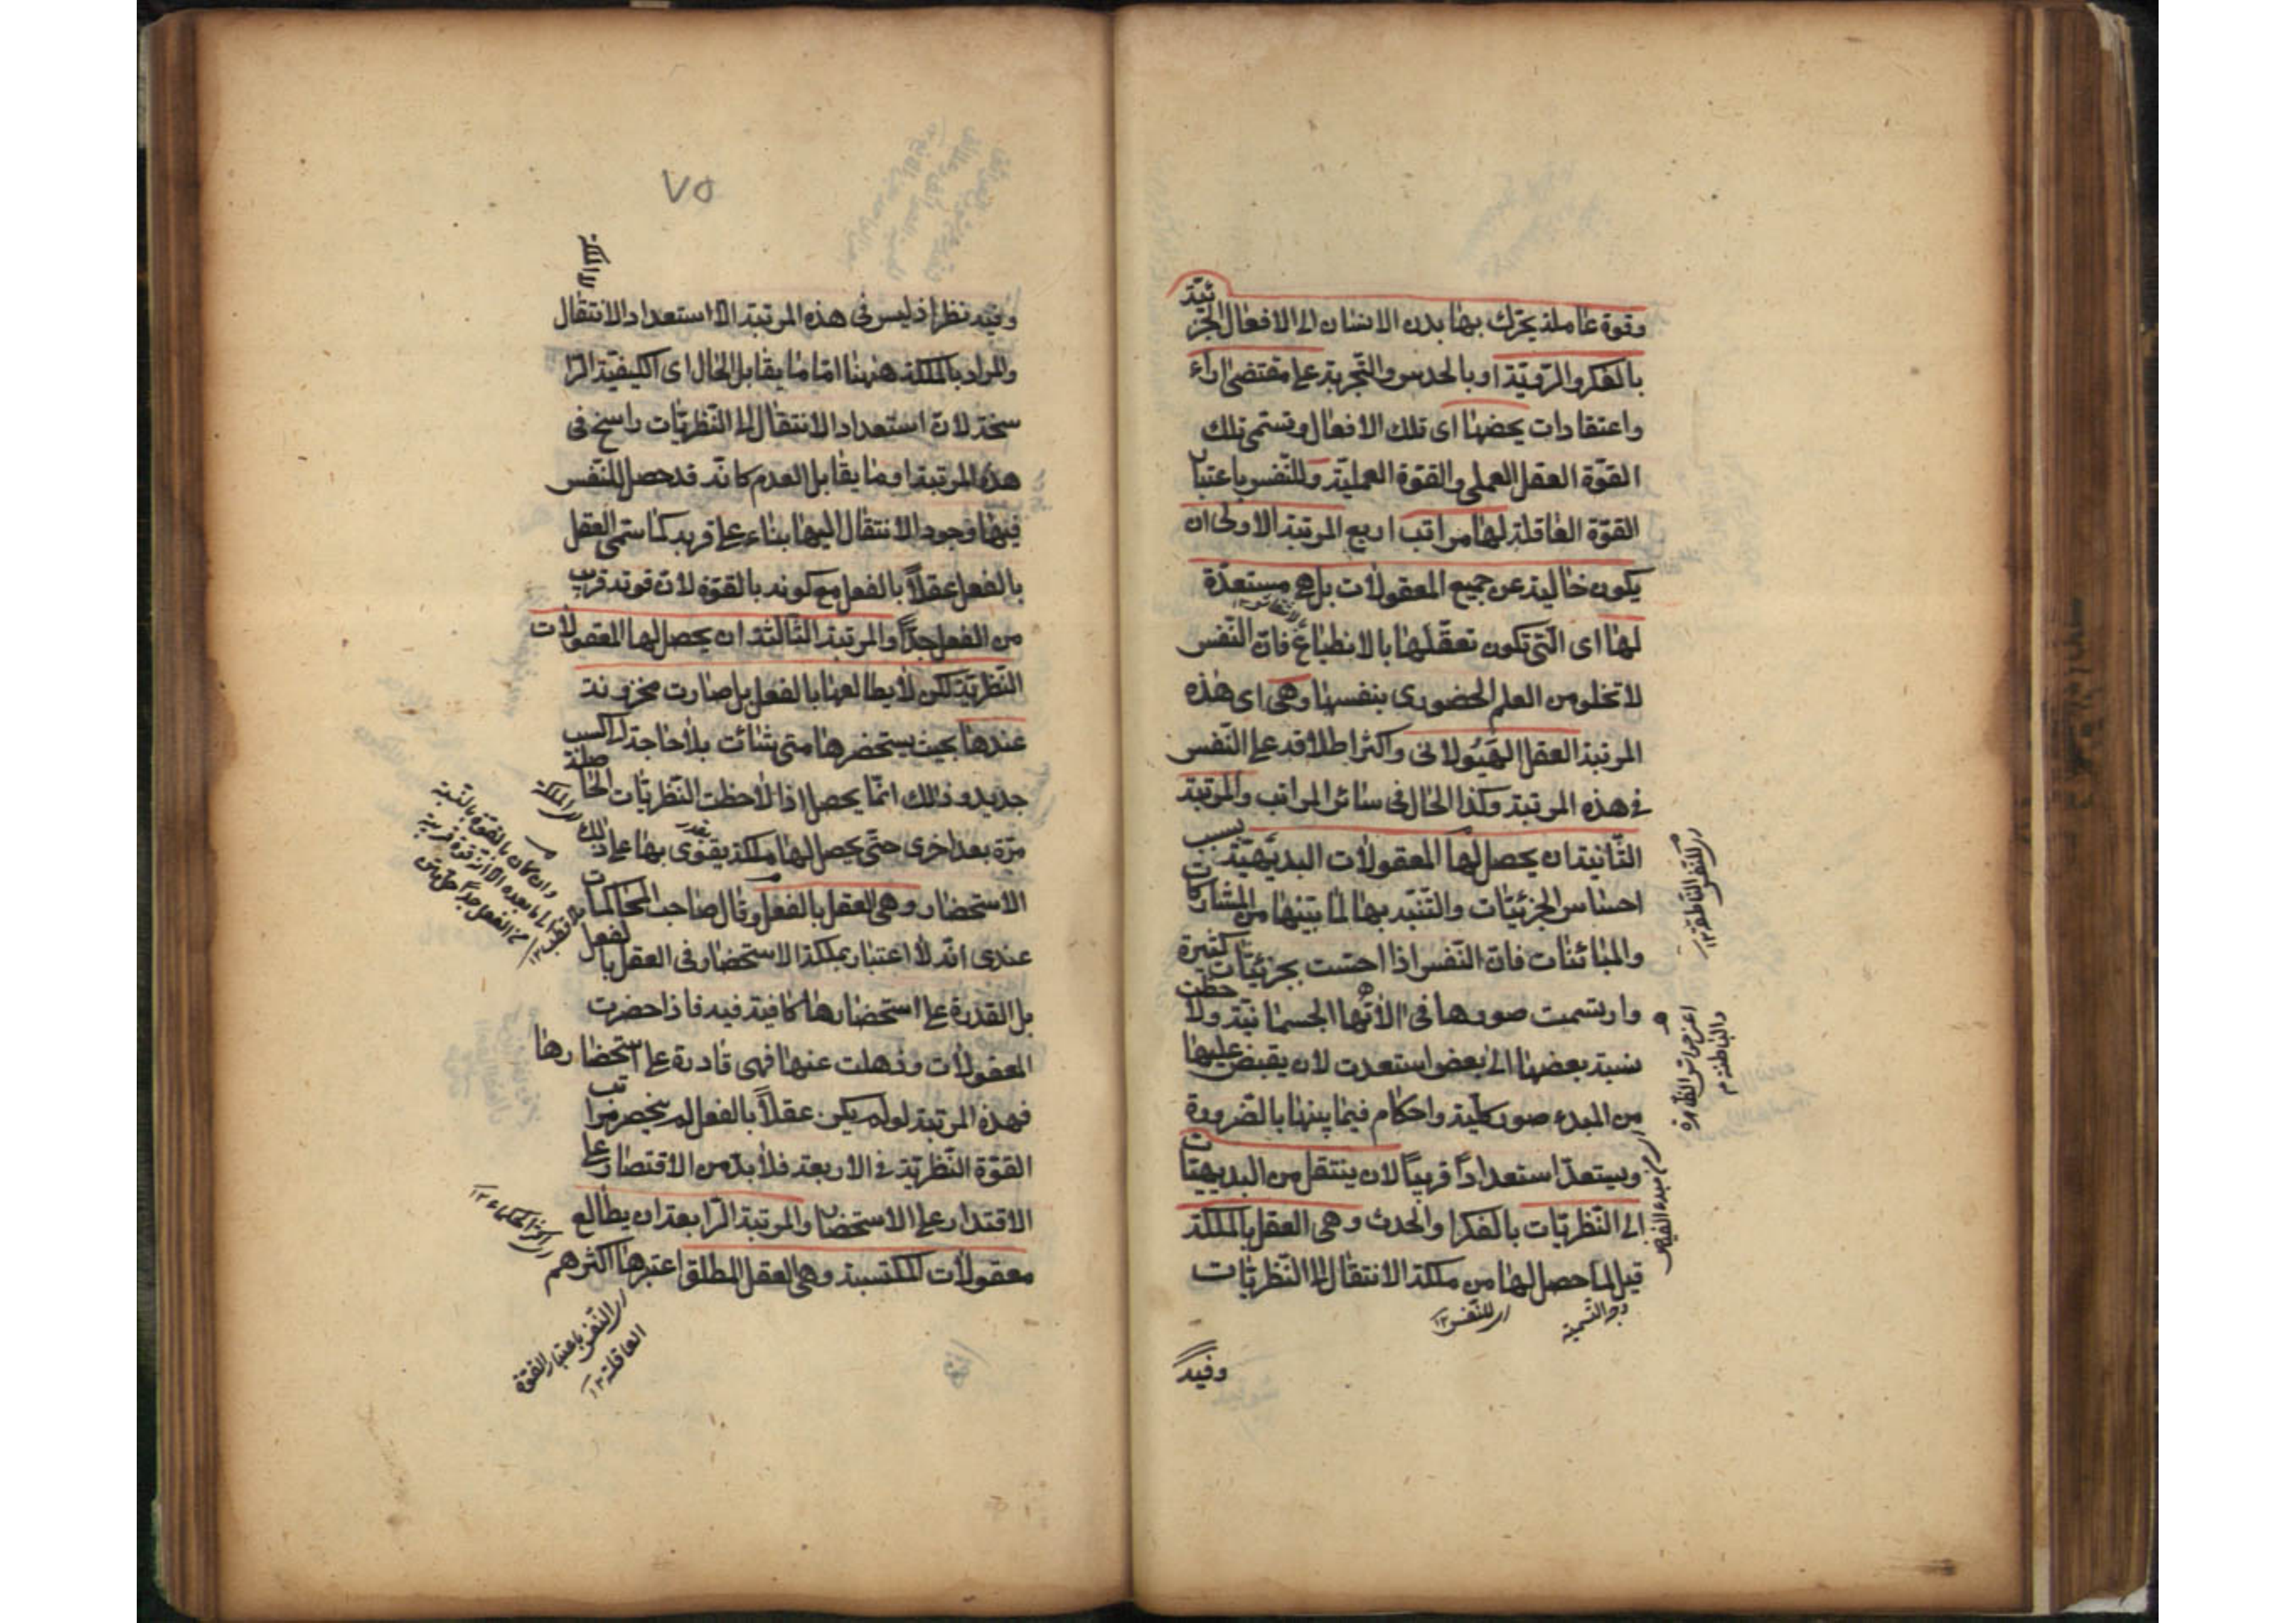 وقوة عاملة يحرّك بها بدن الانسان الى الافعال الجزئيّة
بالفكر والرّويّة او بالحدس والتّجربة على مقتضى اراء
واعتقادات يخصّها اى تلك الافعال وتسمّى تلك
القوّة العقل العملى والقوّة العمليّة وللنّفس باعتبار
القوّة العاقلة لها مراتب اربع المرتبة الاولى ان
يكون خالية عن جميع المعقولات بل هى مستعدّة
لها اى الّتى تكون تعقّلها بالانطباع فانّ النّفس
لا تخلو من العلم الحضورى بنفسها وهى اى هذه
المرتبة العقل الهَيُولانى واكثر اطلاقه على النّفس
فى هذه المرتبة وكذا الحال فى سائر المراتب والمرتبة
الثّانية ان يحصل لها المعقولات البديهيّة بسبب
احساس الجزئيّات والتّنبّه بها لما بينها من المشاركات
والمبائنات فانّ النّفس اذا احسّت بجزئيّات كثيرة
وارتسمت صورها فى الاٰتها الجسمانية ولاحظت
نسبة بعضها الى بعض استعدت لان يفيض عليها
من المبدء صور كلّية واحكام فيما بينها بالضّرورة
ويستعدّ استعداداً قريباً لان ينتقل من البديهيّات
الى النّظريّات بالفكر او الحدث وهى العقل بالملكة
قيل لما حصل لها من ملكة الانتقال الى النّظريّات
اى للنّفس النّاطقة ١٢
اعنى حواس الظّاهرة
والباطنة م
اى مبدء الفيّاض
وجه التّسمية
اى للنّفس ١٢
وفيه
٧٥
وفيه نظر اذ ليس فى هذه المرتبة الّا استعداد الانتقال
والمراد بالملكة هٰهنا امّا ما يقابل الحال اى الكيفيّة الرّا
سخة لانّ استعداد الانتقال الى النّظريّات راسخ فى
هذه المرتبة او ما يقابل العدم كانّه قد حصل للنّفس
فيها وجود الانتقال اليها بناء على قربه كما سمّى العقل
بالفعل عقلاً بالفعل مع كونه بالقوّة لانّ قوته قريب
من الفعل جدّاً والمرتبة الثّالثة ان يحصل لها المعقولات
النّظريّة لكن لا يطالعها بالفعل بل صارت مخزونة
عندها بحيث يستحضرها متى شائت بلا حاجة الى كسب
جديد وذلك انّما يحصل اذا لاحظت النّظريّات الحاصلة
مرّة بعد اخرى حتّى يحصل لها ملكة يقوى بها على ذلك
الاستحضار وهى العقل بالفعل وقال صاحب المحاكمات
عندى انّه لا اعتبار بملكة الاستحضار فى العقل بالفعل
بل القدرة على استحضارها كافية فيه فاذا حضرت
المعقولات وذهلت عنها فهى قادرة على استحضارها
فهذه المرتبة لو لم يكن عقلاً بالفعل لم ينحصر مراتب
القوّة النّظريّة فى الاربعة فلا بدّ من الاقتصار على
الاقتدار على الاستحضار والمرتبة الرّابعة ان يطالع
معقولات المكتسبة وهى العقل المطلق اعتبرها اكثرهم
وان كان بالقوّة بالنّسبة
اكثر الحكماء ١٢
اى النّفس باعتبار القوّة
العاقلة ١٢